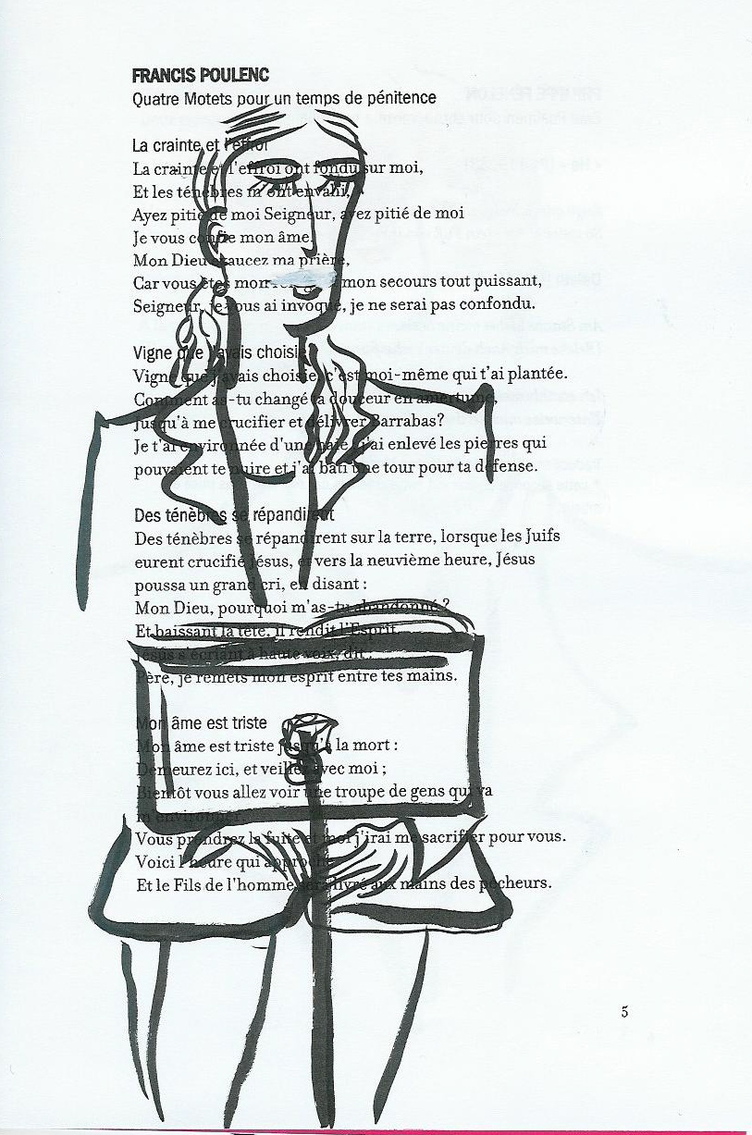 FRANCIS POULENC
Quatre Motets pour un temps de pénitence
La crainte et l'effroi
La crainte et l'effroi ont fondu sur moi,
Et les ténèbres m'ont envahi,
Ayez pitié de moi Seigneur, ayez pitié de moi
Je vous confie mon âme,
Mon Dieu exaucez ma prière,
Car vous êtes mon mon secours tout puissant,
Seigneur, je vous ai invoqué, je ne serai pas confondu.
Vigne que j'avais choisie
Vigne que j'avais choisie, c'est moi-même qui t'ai plantée.
Comment as-tu changé ta douceur en amertume,
Jusqu'à me crucifier et délivrer Barrabas?
Je t'ai environnée d'une haie, j'ai enlevé les pierres qui
pouvaient te nuire et j'ai bâti une tour pour ta défense.
Des ténèbres se répandirent
Des ténèbres se répandirent sur la terre, lorsque les Juifs
eurent crucifié Jésus, et vers la neuvième heure, Jésus
poussa un grand cri, en disant :
Mon Dieu, pourquoi m'as-tu abandonné ?
Et baissant la tête, il rendit l'Esprit.
Jésus s'écriant à haute voix, dit :
Père, je remets mon esprit entre tes mains.
Mon âme est triste
Mon âme est triste jusqu'à la mort :
Demeurez ici, et veillez avec moi ;
Bientôt vous allez voir une troupe de gens qui va
m'environner.
Vous prendrez la fuite et moi j'irai me sacrifier pour vous.
Voici l'heure qui approche
Et le Fils de l'homme sera livré aux mains des pécheurs.
5